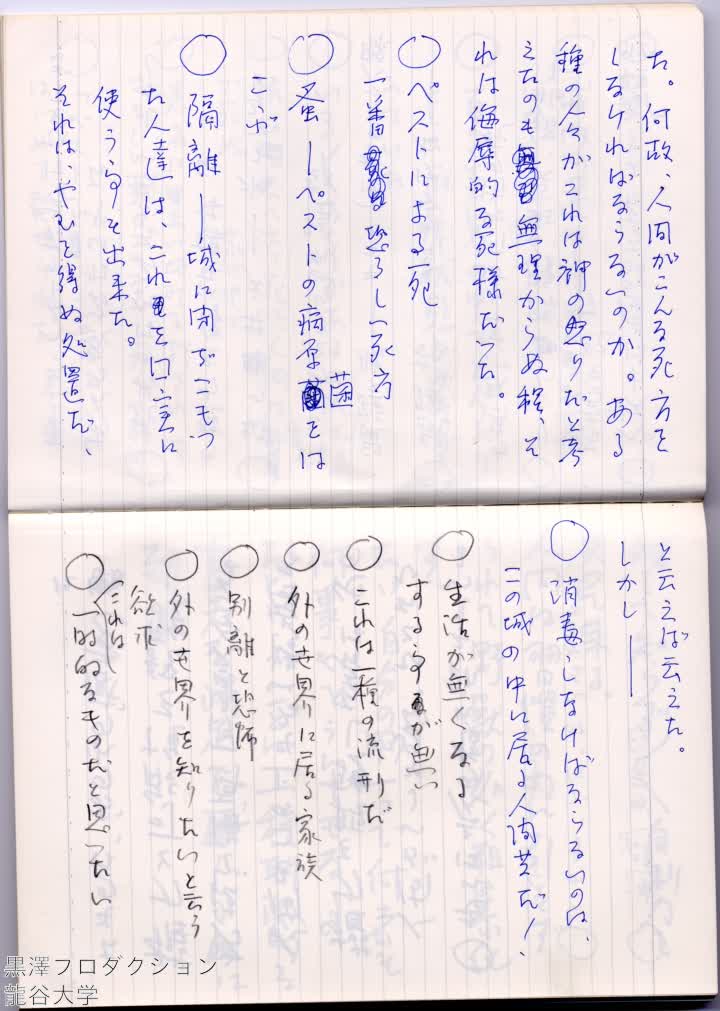 た。何故、人間がこんな死方を
しなければならないのか。ある
種の人々がこれは神の怒りだと考
えたのも無理からぬ程、そ
れは侮辱的な死様だった。
○ ペストによる死
一番恐ろしい死方
○ 蚤―ペストの病原菌をは
こぶ
○ 隔離―城に閉ぢこもっ
た人達は、これを口実に
使う事も出来た。
それは、やむを得ぬ処置だ、
と云えば云えた。
しかし――
○ 消毒しなければならないのは、
この城の中に居る人間共だ!、
○ 生活が無くなる
する事が無い
○ これは一種の流刑だ
○ 外の世界に居る家族
○ 別離と恐怖
○ 外の世界を知りたいと云う
欲求
○ これは
一時的なものだと思ってたい
黒澤プロダクション
龍谷大学